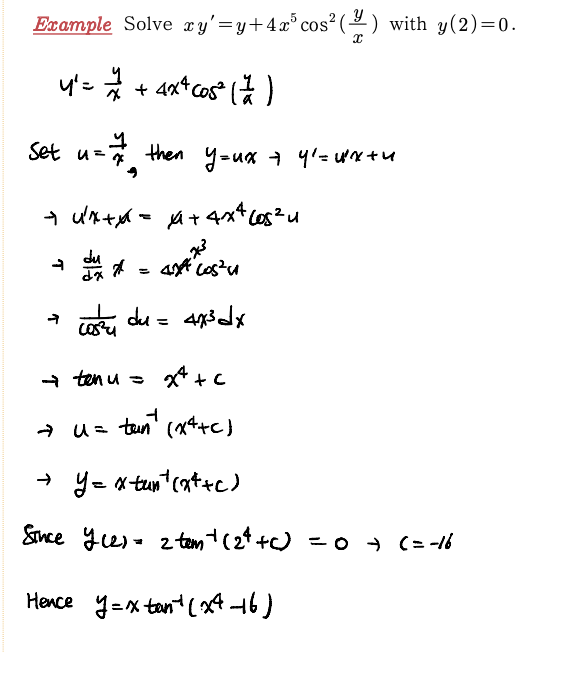 Example Solve xy'=y+4x⁵cos²(y/x) with y(2)=0.
y' = y/x + 4x⁴cos²(y/x)
Set u = y/x, then y=ux → y'=u'x+u
→ u'x+u = u+4x⁴cos²u
→ du/dx x = 4x⁴ x³ cos²u
→ 1/cos²u du = 4x³dx
→ tan u = x⁴+c
→ u = tan⁻¹(x⁴+c)
→ y = x tan⁻¹(x⁴+c)
Since y(2) = 2tan⁻¹(2⁴+c) = 0 → c=-16
Hence y=x tan⁻¹(x⁴-16)